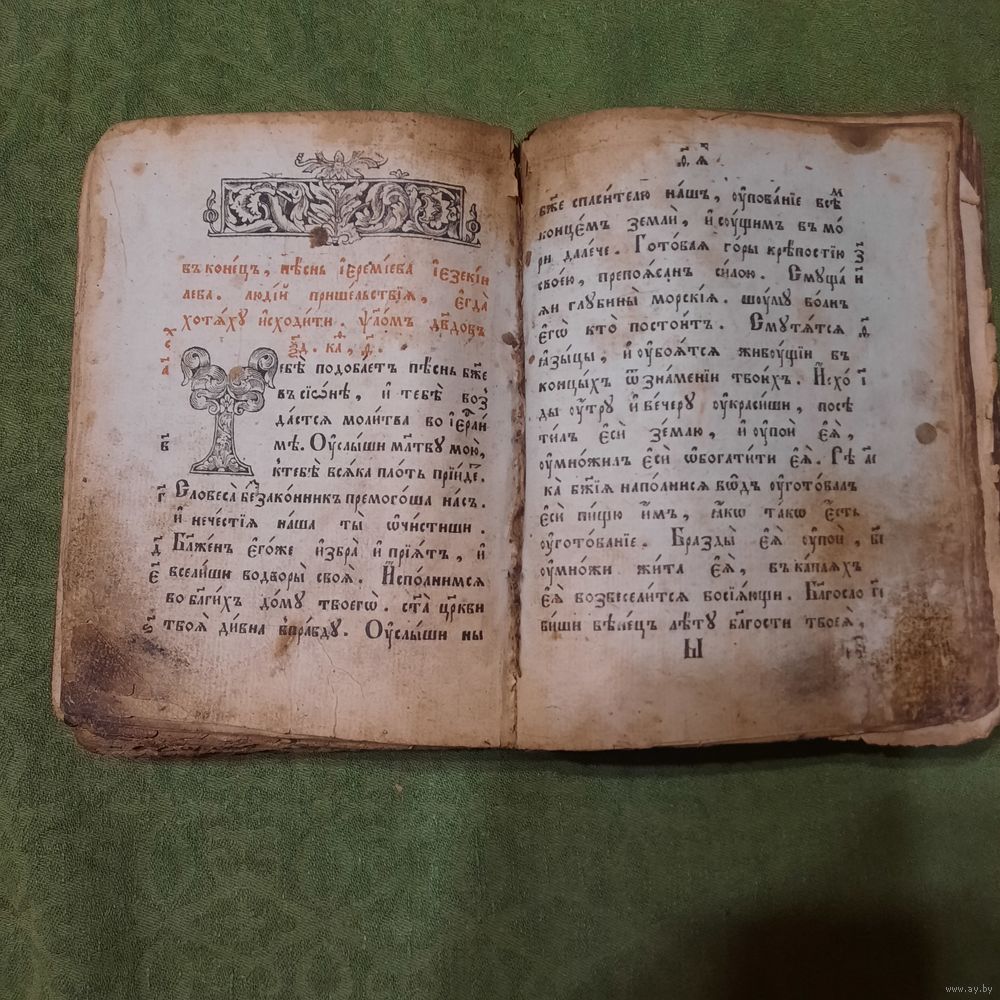 въ коне́цъ, пѣ́снь і҆еремі́ева і҆езекі́и
лева. люді́й пришєльствїѧ, є҆гда̀
хотѧ́ху и҆сходи́ти. ѱа҃ло́мъ дв҃довъ
ѯ҃д. ка,
Тебѣ̀ подоба́етъ пѣ́снь бж҃е
въ сїѡ́нѣ, и҆ тебѣ̀ воз
да́стсѧ моли́тва во і҆ер҃ли
мѣ. Оу҆слы́ши мл҃тву мою̀,
к тебѣ̀ всѧ́ка пло́ть прїи́де.
Словеса̀ беззако́нникъ премого́ша на́съ.
и҆ нече́стїѧ на́ша ты̀ ѡ҆чи́стиши.
Бл҃же́нъ є҆го́же и҆збра̀ и҆ прїѧ́тъ, и҆
всели́ши во дворы̀ своѧ̀. И҆спо́лнимсѧ
во бл҃ги́хъ до́му твоегѡ̀. ст҃а̀ цр҃кви
твоѧ̀ ди́вна в пра́вду. Оу҆слы́ши ны
бж҃е спаси́телю на́шъ, оу҆пова́нїе всѣ́м
конце́мъ землѝ, и҆ су́щимъ в мо́
ри дале́че. Гото́ваѧ го́ры крѣ́постїю
свое́ю, препоѧ́санъ си́лою. Смуща́
ѧи глубины̀ морскі́ѧ. шо́уму во́лнъ
є҆гѡ̀ кто̀ постои́тъ. Смутѧ́тсѧ
ꙗ҆зы́цы, и҆ оу҆боѧ́тсѧ живоу́щїи въ
конца́хъ ѿ зна́менїи твои́хъ. И҆схо́
ды оу҆́тру и҆ ве́черу оу҆кра́сиши, посѣ
ти́лъ є҆сѝ зе́млю, и҆ оу҆поѝ є҆ѧ̀,
оу҆мно́жилъ є҆сѝ ѡ҆богати́ти є҆ѧ̀. Рѣ
ка̀ бж҃їѧ напо́лнисѧ во́дъ оу҆гото́валъ
є҆сѝ пи́щю и҆̀мъ, ꙗ҆́кѡ та́кѡ є҆́сть
оу҆гото́ванїе. Бразды̀ є҆ѧ̀ оу҆поѝ,
оу҆мно́жи жи́та є҆ѧ̀, въ ка́плѧхъ
є҆ѧ̀ возвесели́тсѧ босїѧ́ющи. Бл҃госло
ви́ши вѣне́цъ лѣ́ту бл҃гости твоеѧ̀,
Ы
www.ay.by